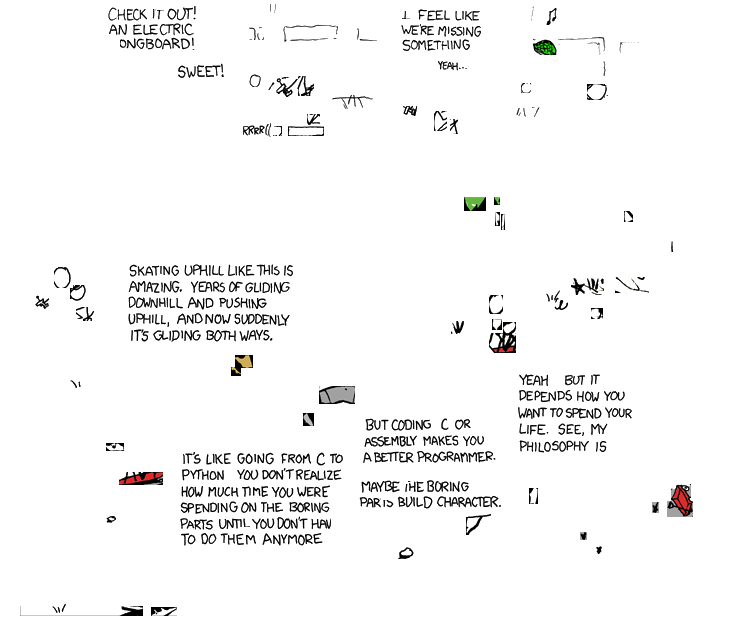 CHECK IT OUT!
AN ELECTRIC
ONGBOARD!
SWEET!
RRRR
I FEEL LIKE
WE'RE MISSING
SOMETHING
YEAH...
SKATING UPHILL LIKE THIS IS
AMAZING. YEARS OF GLIDING
DOWNHILL AND PUSHING
UPHILL, AND NOW SUDDENLY
IT'S GLIDING BOTH WAYS.
IT'S LIKE GOING FROM C TO
PYTHON YOU DON'T REALIZE
HOW MUCH TIME YOU WERE
SPENDING ON THE BORING
PARTS UNTIL YOU DON'T HAV
TO DO THEM ANYMORE
BUT CODING C OR
ASSEMBLY MAKES YOU
A BETTER PROGRAMMER.
MAYBE THE BORING
PARTS BUILD CHARACTER.
YEAH BUT IT
DEPENDS HOW YOU
WANT TO SPEND YOUR
LIFE. SEE, MY
PHILOSOPHY IS